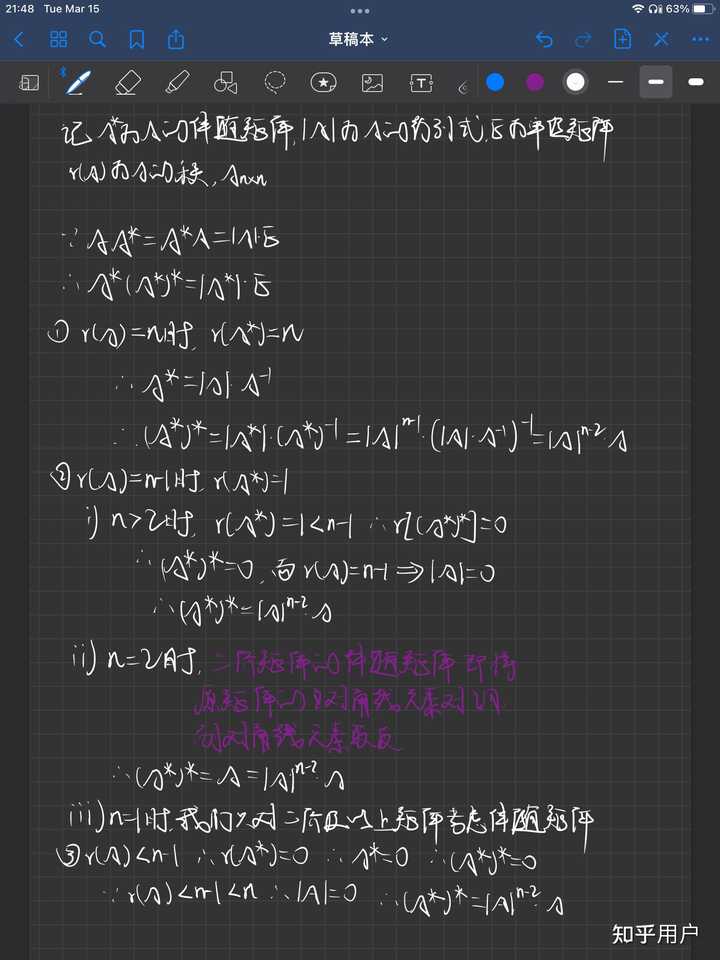 21:48 Tue Mar 15
63%
草稿本
记 A*为A的伴随矩阵,|A|为A的行列式,E为单位矩阵
r(A)为A的秩, Aₙₓₙ
∵ AA*=A*A=|A|·E
∴ A*(A*)*=|A*|·E
① r(A)=n时, r(A*)=n
∴ A*=|A|·A⁻¹
∴ (A*)*=|A*|·(A*)⁻¹=|A|ⁿ⁻¹·(|A|·A⁻¹)⁻¹=|A|ⁿ⁻²·A
② r(A)=n-1时, r(A*)=1
i) n>2时, r(A*)=1<n-1 ∴r[(A*)*]=0
∴ (A*)*=0, 而 r(A)=n-1⇒|A|=0
∴ (A*)*=|A|ⁿ⁻²·A
ii) n=2时, 二阶矩阵的伴随矩阵即将
原矩阵的主对角线元素对调
副对角线元素取反
∴(A*)*=A=|A|ⁿ⁻²·A
iii) n=1时,我们只对二阶及以上矩阵考虑伴随矩阵
③ r(A)<n-1 ∴r(A*)=0 ∴A*=0 ∴(A*)*=0
∵r(A)<n-1<n ∴|A|=0 ∴(A*)*=|A|ⁿ⁻²·A
知乎用户